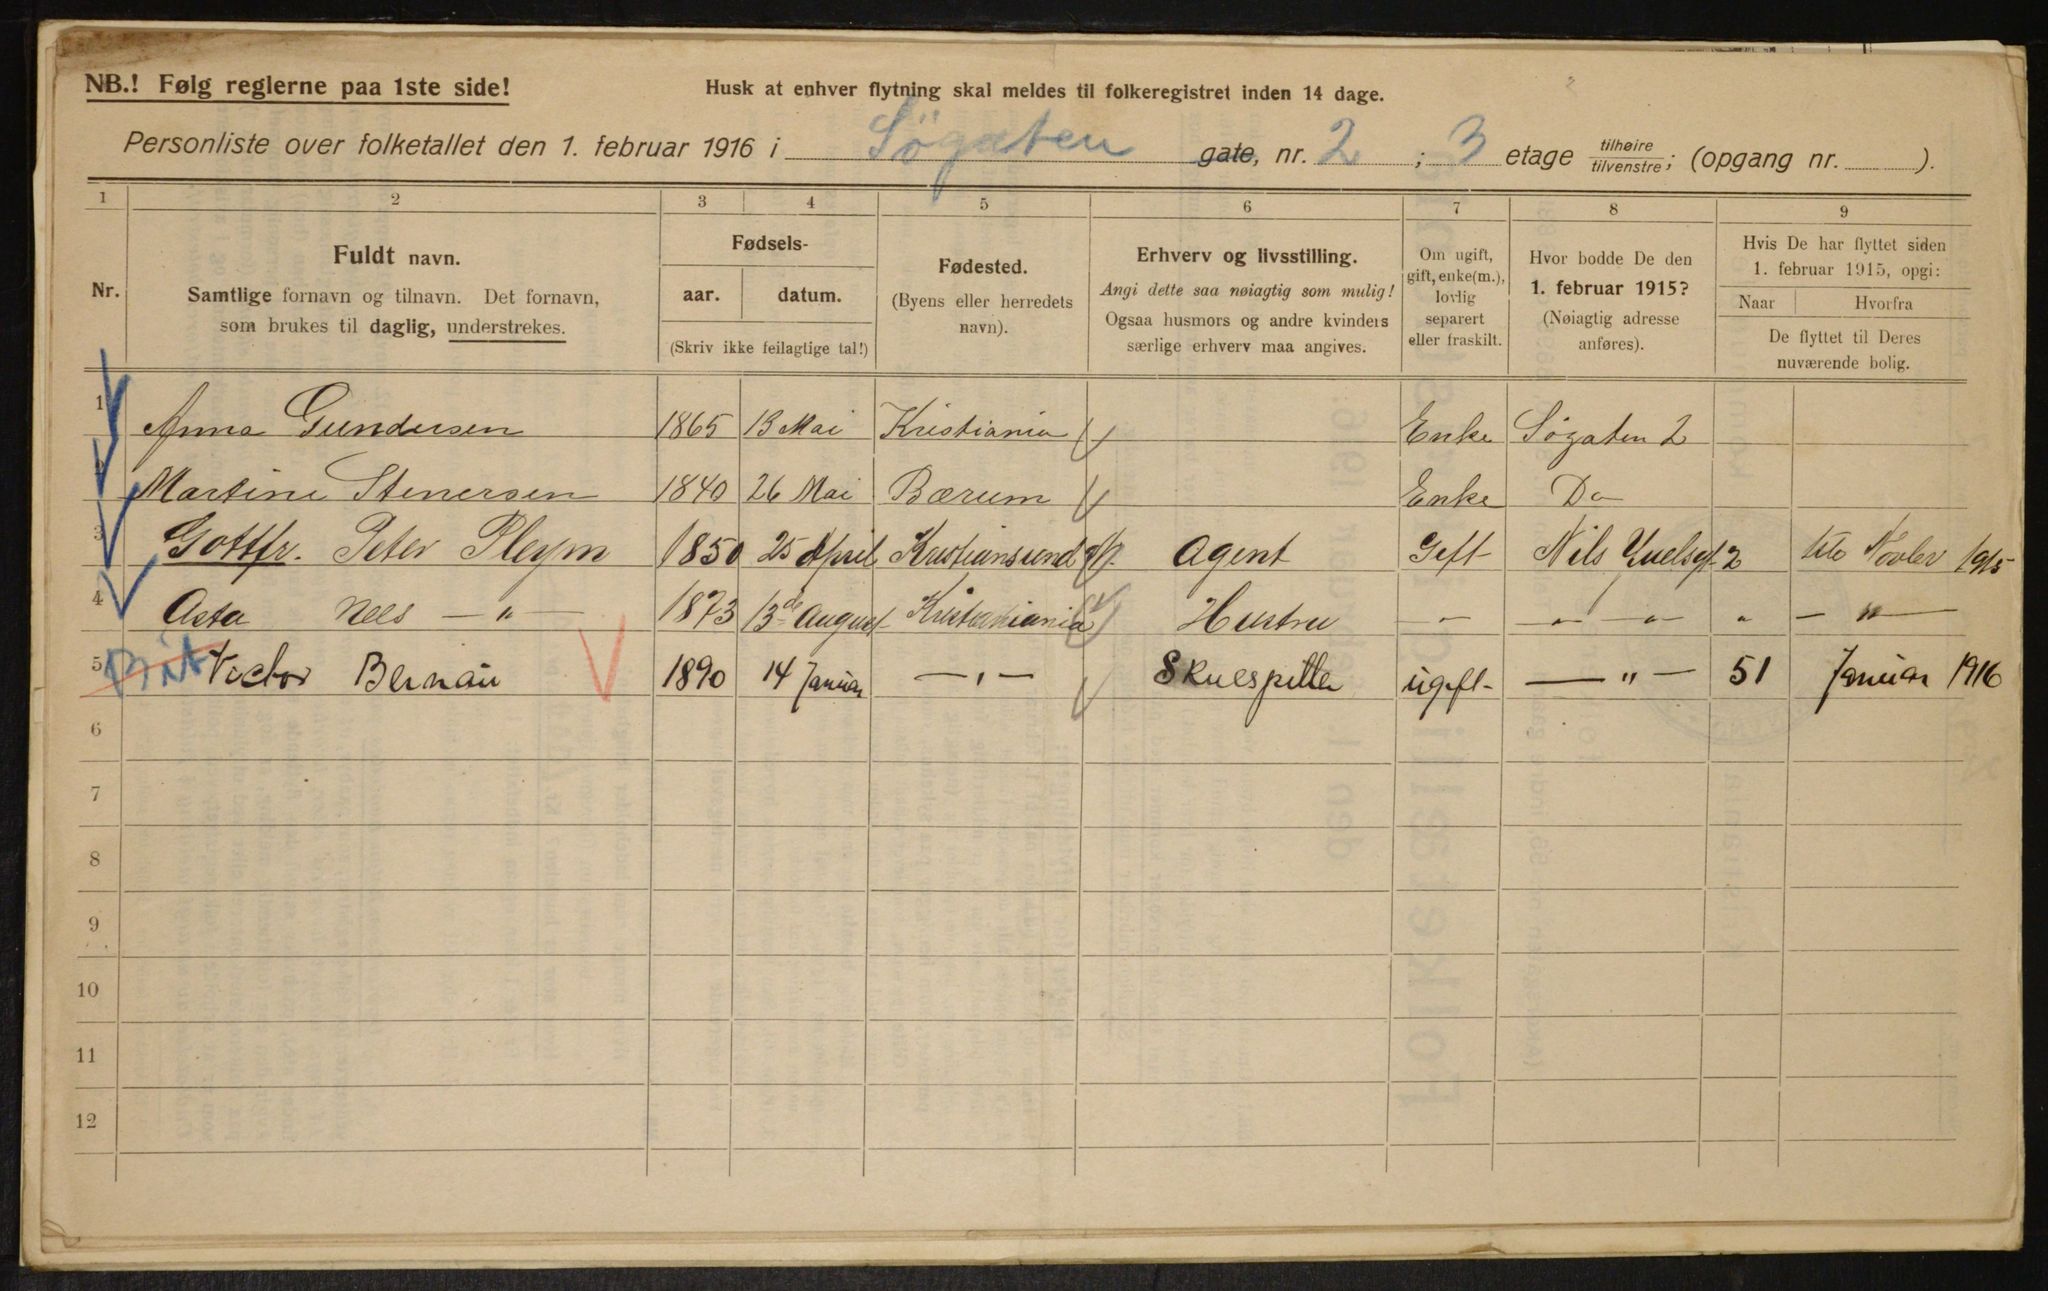 NB.! Følg reglerne paa 1ste side!
Husk at enhver flytning skal meldes til folkeregistret inden 14 dage.
Personliste over folketallet den 1. februar 1916 i Søgaten gate, nr. 2 ; 3 etage tilhøire/tilvenstre; (opgang nr. ).
1 2 3 4 5 6 7 8 9
Nr.
Fuldt navn.
Samtlige fornavn og tilnavn. Det fornavn,
som brukes til daglig, understrekes.
Fødsels-
aar. datum.
(Skriv ikke feilagtige tal!)
Fødested.
(Byens eller herredets
navn).
Erhverv og livsstilling.
Angi dette saa nøiagtig som mulig!
Ogsaa husmors og andre kvinders
særlige erhverv maa angives.
Om ugift,
gift, enke(m.),
lovlig
separert
eller fraskilt.
Hvor bodde De den
1. februar 1915?
(Nøiagtig adresse
anføres).
Hvis De har flyttet siden
1. februar 1915, opgi:
Naar Hvorfra
De flyttet til Deres
nuværende bolig.
1 Anna Gundersen 1865 13 Mai Kristiania Enke Søgaten 2
2 Martine Stenersen 1840 26 Mai Bærum Enke Do
3 Gottfr. Peter Pleym 1850 25 April Kristiansund Agent Gift Nils Yuelsgt 2 1915
4 Asta Nees — " — 1873 13de August Kristiania Hustru — " — — " — — " — " — " —
5 Victor Bernau 1890 14 Januar — " — Skuespiller ugift — " — 51 Januar 1916
6
7
8
9
10
11
12